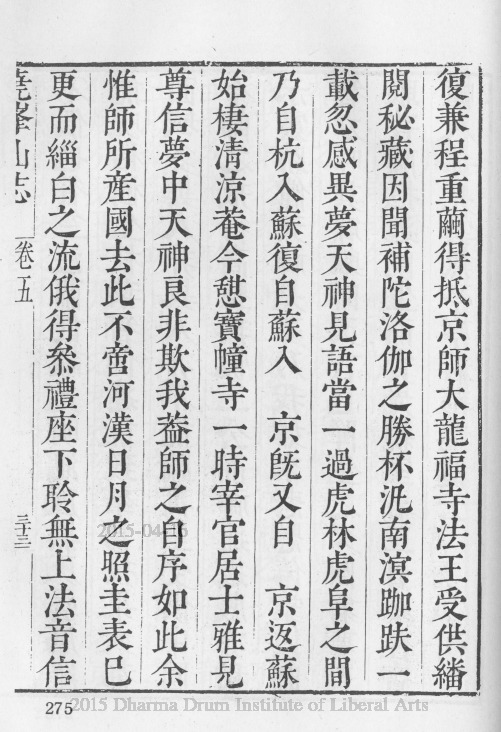 復兼程重繭得抵京師大龍福寺法王受供繙
閱秘藏因聞補陀洛伽之勝杯汎南溟跏趺一
載忽感異夢天神見語當一過虎林虎阜之間
乃自杭入蘇復自蘇入　京旣又自　京返蘇
始棲清涼菴今憇寶幢寺一時宰官居士雅見
尊信夢中天神良非欺我葢師之自序如此余
惟師所産國去此不啻河漢日月之照圭表已
更而緇白之流俄得叅禮座下聆無上法音信
堯峯山志
卷五
三十三
2015-04-16
275
2015 Dharma Drum Institute of Liberal Arts